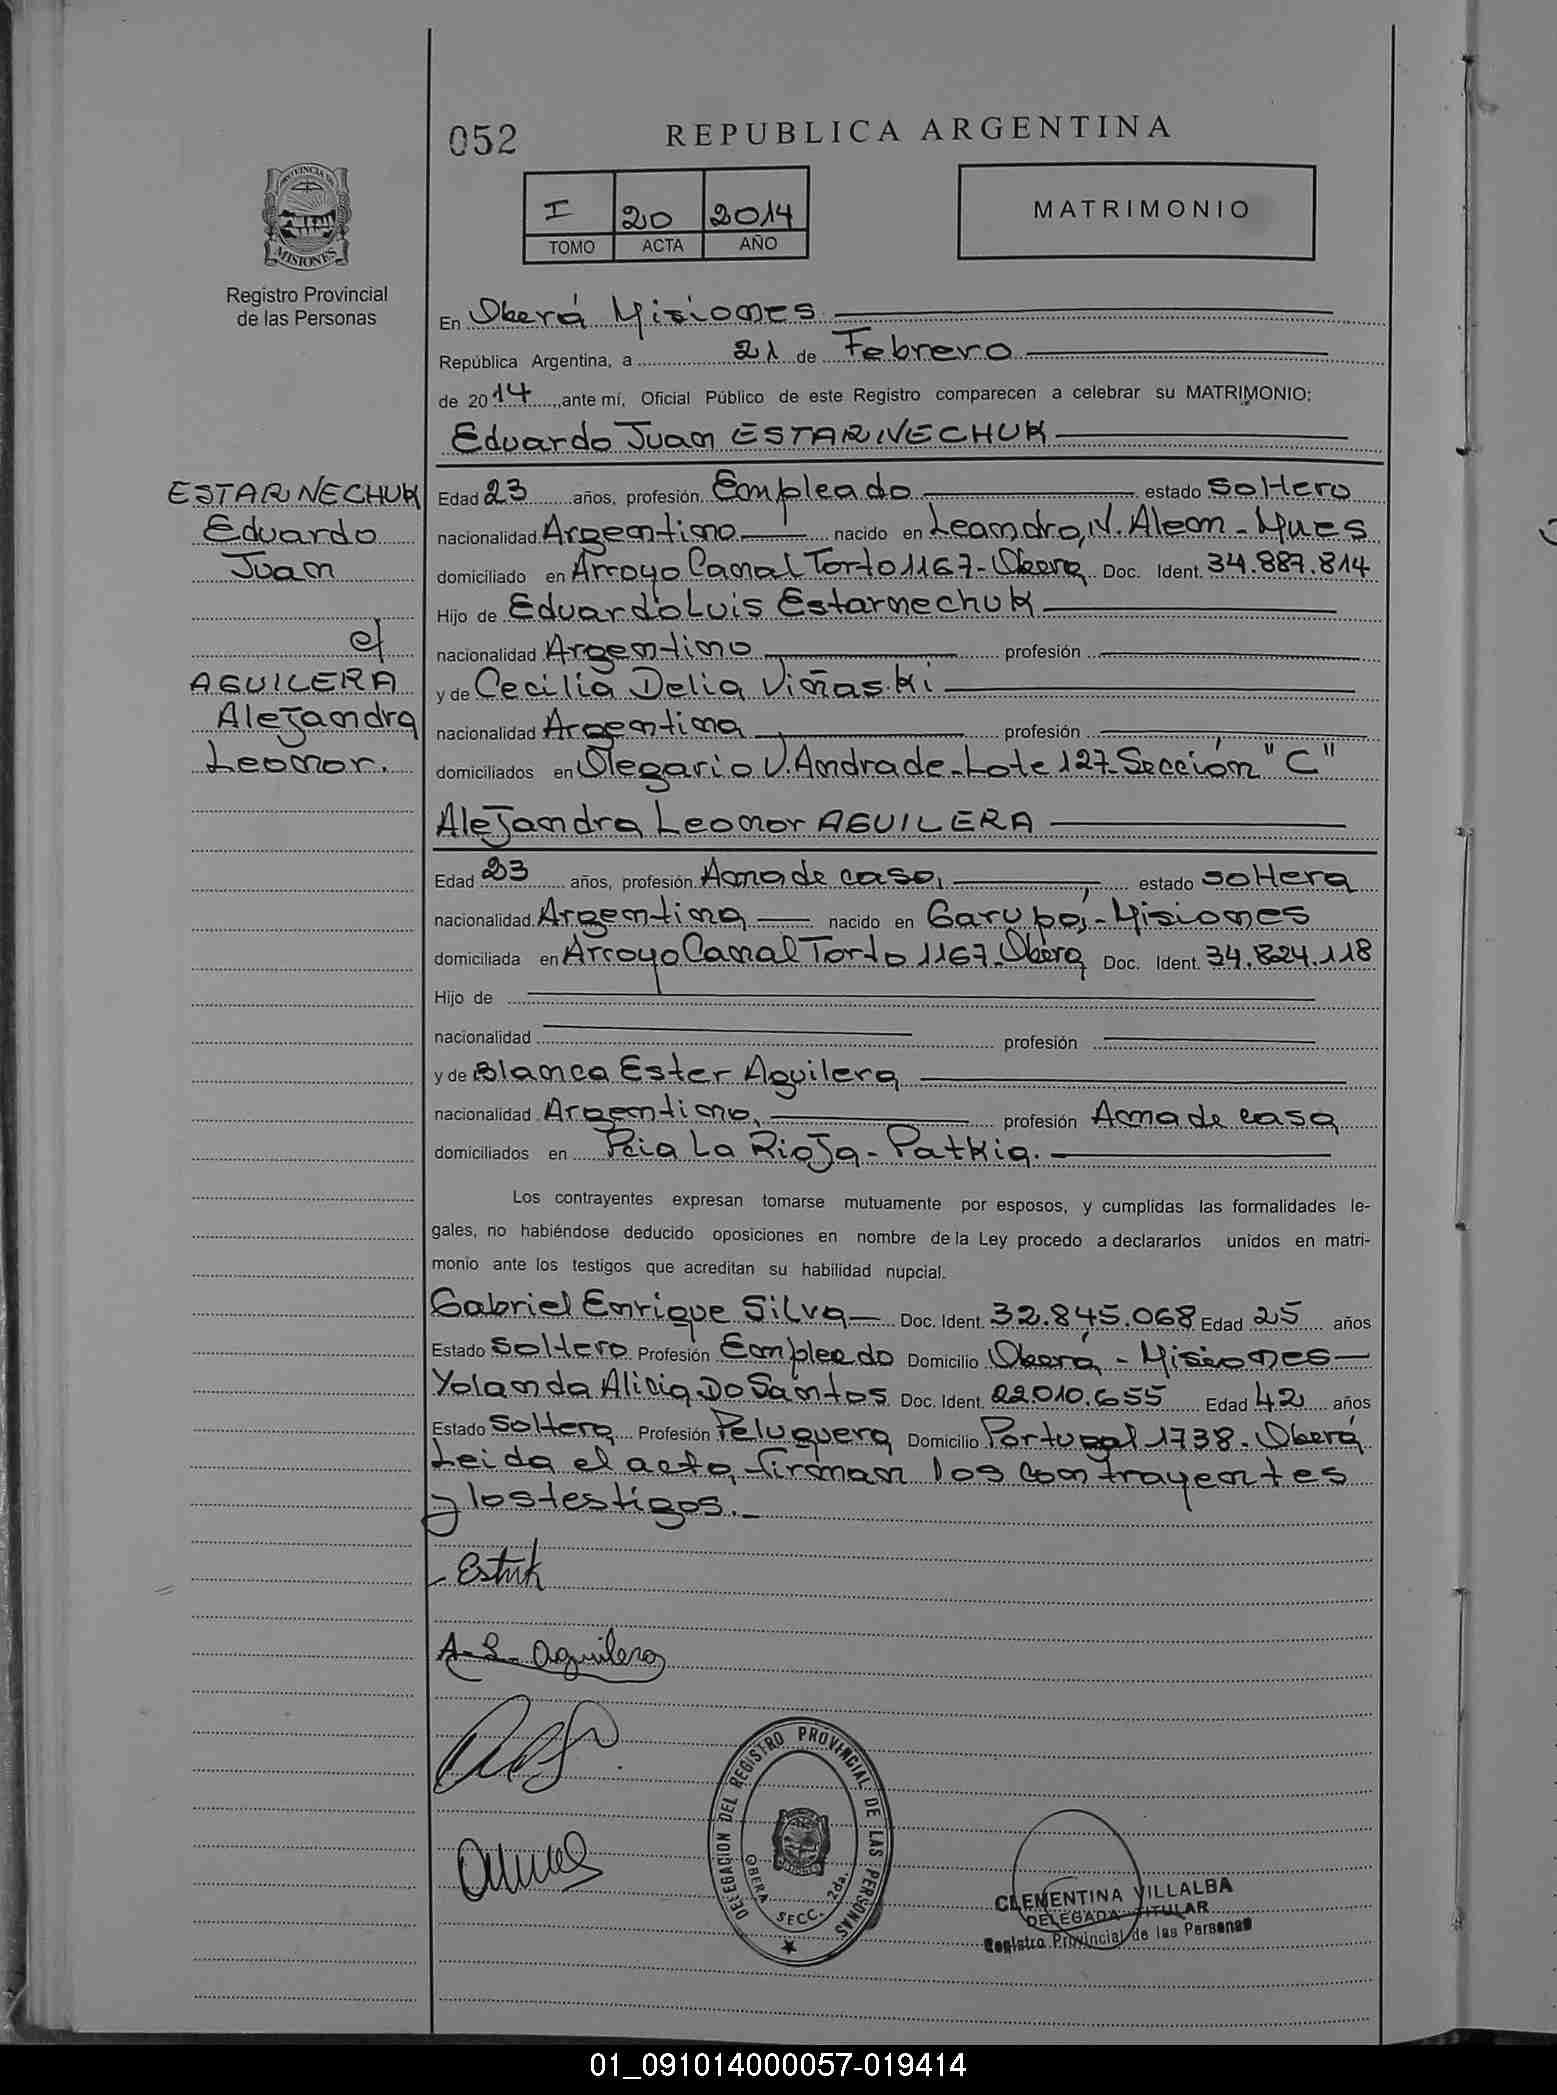 052
REPUBLICA ARGENTINA
PROVINCIA DE
MISIONES
Registro Provincial
de las Personas
I 20 2014
TOMO ACTA AÑO
MATRIMONIO
En Oberá Misiones
República Argentina, a 21 de Febrero
de 2014, ante mí, Oficial Público de este Registro comparecen a celebrar su MATRIMONIO:
Eduardo Juan ESTARNECHUK
ESTARNECHUK
Eduardo
Juan
c/
AGUILERA
Alejandra
Leonor.
Edad 23 años, profesión Empleado estado Soltero
nacionalidad Argentino nacido en Leandro, N. Alem - Mnes
domiciliado en Arroyo Canal Torto 1167 - Oberá Doc. Ident. 34.887.814
Hijo de Eduardo Luis Estarnechuk
nacionalidad Argentino profesión
y de Cecilia Delia Viñaski
nacionalidad Argentina profesión
domiciliados en Olegario V. Andrade - Lote 127 - Sección "C"
Alejandra Leonor AGUILERA
Edad 23 años, profesión Ama de casa, estado soltera
nacionalidad Argentina nacido en Garupá, - Misiones
domiciliada en Arroyo Canal Torto 1167 - Oberá Doc. Ident. 34.824.118
Hijo de
nacionalidad profesión
y de Blanca Ester Aguilera
nacionalidad Argentina, profesión Ama de casa
domiciliados en Pcia La Rioja - Patkia.
Los contrayentes expresan tomarse mutuamente por esposos, y cumplidas las formalidades le-
gales, no habiéndose deducido oposiciones en nombre de la Ley procedo a declararlos unidos en matri-
monio ante los testigos que acreditan su habilidad nupcial.
Gabriel Enrique Silva Doc. Ident. 32.845.068 Edad 25 años
Estado Soltero Profesión Empleado Domicilio Oberá - Misiones
Yolanda Alicia Do Santos Doc. Ident. 22.010.655 Edad 42 años
Estado Soltera Profesión Peluquera Domicilio Portugal 1738 - Oberá
Leida el acta, firman los contrayentes
y los testigos.
Estuk
A. L. Aguilera
DELEGACION DEL REGISTRO PROVINCIAL DE LAS PERSONAS
OBERA SECC. 2da.
CLEMENTINA VILLALBA
DELEGADA TITULAR
Registro Provincial de las Personas
01_091014000057-019414